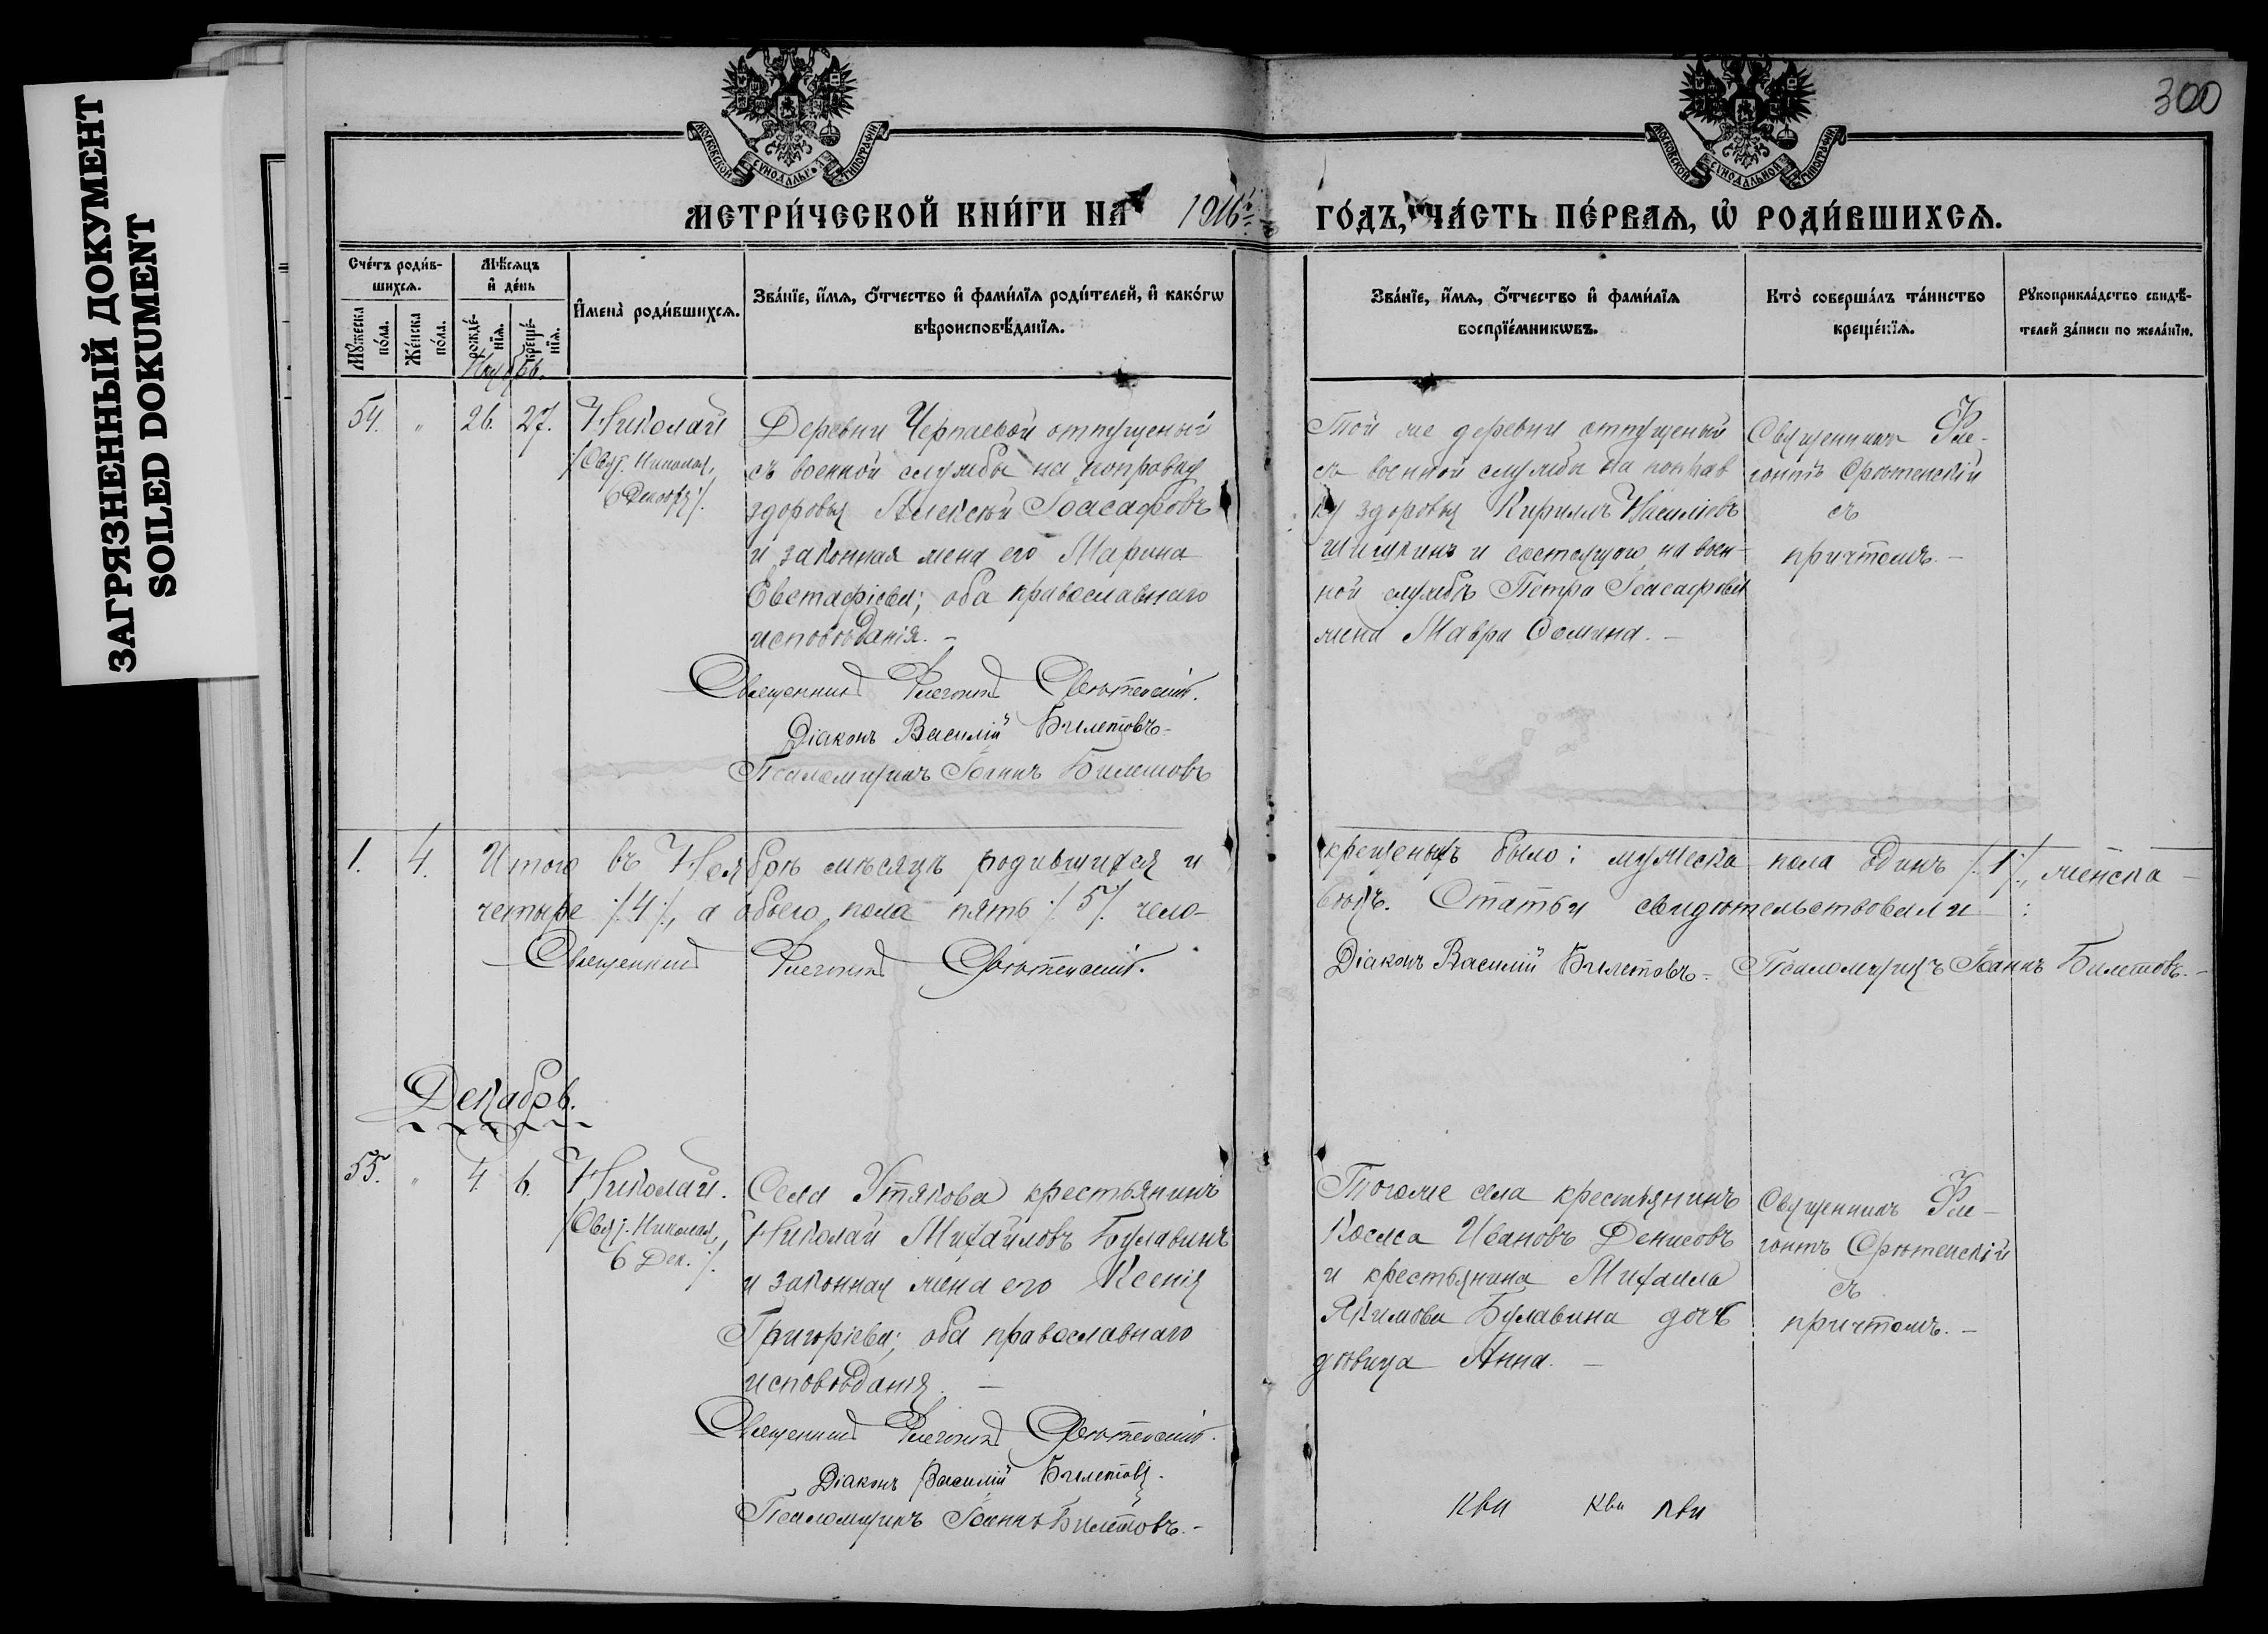 ЗАГРЯЗНЕННЫЙ ДОКУМЕНТ
SOILED DOKUMENT
300
МОСКОВСКОЙ СУНОДАЛЬНОЙ ТИПОГРАФІИ
МОСКОВСКОЙ СУНОДАЛЬНОЙ ТИПОГРАФІИ
МЕТРИ́ЧЕСКОЙ КНИ́ГИ НА 1916й
ГО́ДЪ, ЧА́СТЬ ПЕ́РВАЯ, Ѡ҆ РОДИ́ВШИХСЯ.
Сче́тъ роди́в-
шихся.
Мѣ́сяцъ
и҆ де́нь
Мꙋ́жеска
по́ла.
Же́нска
по́ла.
рожде́-
нїя.
креще́-
нїя.
И҆мена̀ роди́вшихся.
Зва́нїе, и҆́мя, о҆́тчество и҆ фами́лїя роди́телей, и҆ како́гѡ
вѣроисповѣ́данїя.
Зва́нїе, и҆́мя, о҆́тчество и҆ фами́лїя
воспрїе́мникѡвъ.
Кто̀ соверша́лъ та́инство
креще́нїя.
Рꙋкоприкла́дство свидѣ́-
телей за́писи по жела́нїю.
Ноябрь.
54. " 26. 27. Николай
/:Свят. Николая,
6 Декабря:/.
Деревни Черпаевой отпущеный
съ военной службы на поправку
здоровья Алексѣй Іоасафовъ
и законная жена его Марина
Евстафіева; оба православнаго
исповѣданія. –
Священникъ Флегонтъ Срѣтенскій.
Діаконъ Василій Билетовъ.
Псаломщикъ Іоаннъ Билетовъ
Той же деревни отпущеный
съ военной службы на поправ
ку здоровья Кириллъ
Шишкинъ и состоящаго на воен-
ной службѣ Петра Іоасафова
жена Мавра Ѳомина. –
Священникъ Фле-
гонтъ Срѣтенскій
съ
причтомъ. –
1. 4. Итого въ Ноябрѣ мѣсяцѣ родившихся и крещеныхъ было: мужеска пола одинъ /:1:/, женска –
четыре /:4:/, а обоего пола пять /:5:/ чело- вѣкъ. Статьи свидѣтельствовали :
Священникъ Флегонтъ Срѣтенскій. Діаконъ Василій Билетовъ. Псаломщикъ Іоаннъ Билетовъ. –
Декабрь.
55. " 4. 6. Николай.
/:Свят. Николая,
6 Дек.:/.
Села Утякова крестьянинъ
Николай Михайловъ Булавинъ
и законная жена его Ксенія
Григоріева; оба православнаго
исповѣданія. –
Священникъ Флегонтъ Срѣтенскій.
Діаконъ Василій Билетовъ.
Псаломщикъ Іоаннъ Билетовъ. –
Тогоже села крестьянинъ
Косма Ивановъ Денисовъ
и крестьянина Михаила
Якимова Булавина дочь
дѣвица Анна. –
Священникъ Фле-
гонтъ Срѣтенскій
съ
причтомъ. –